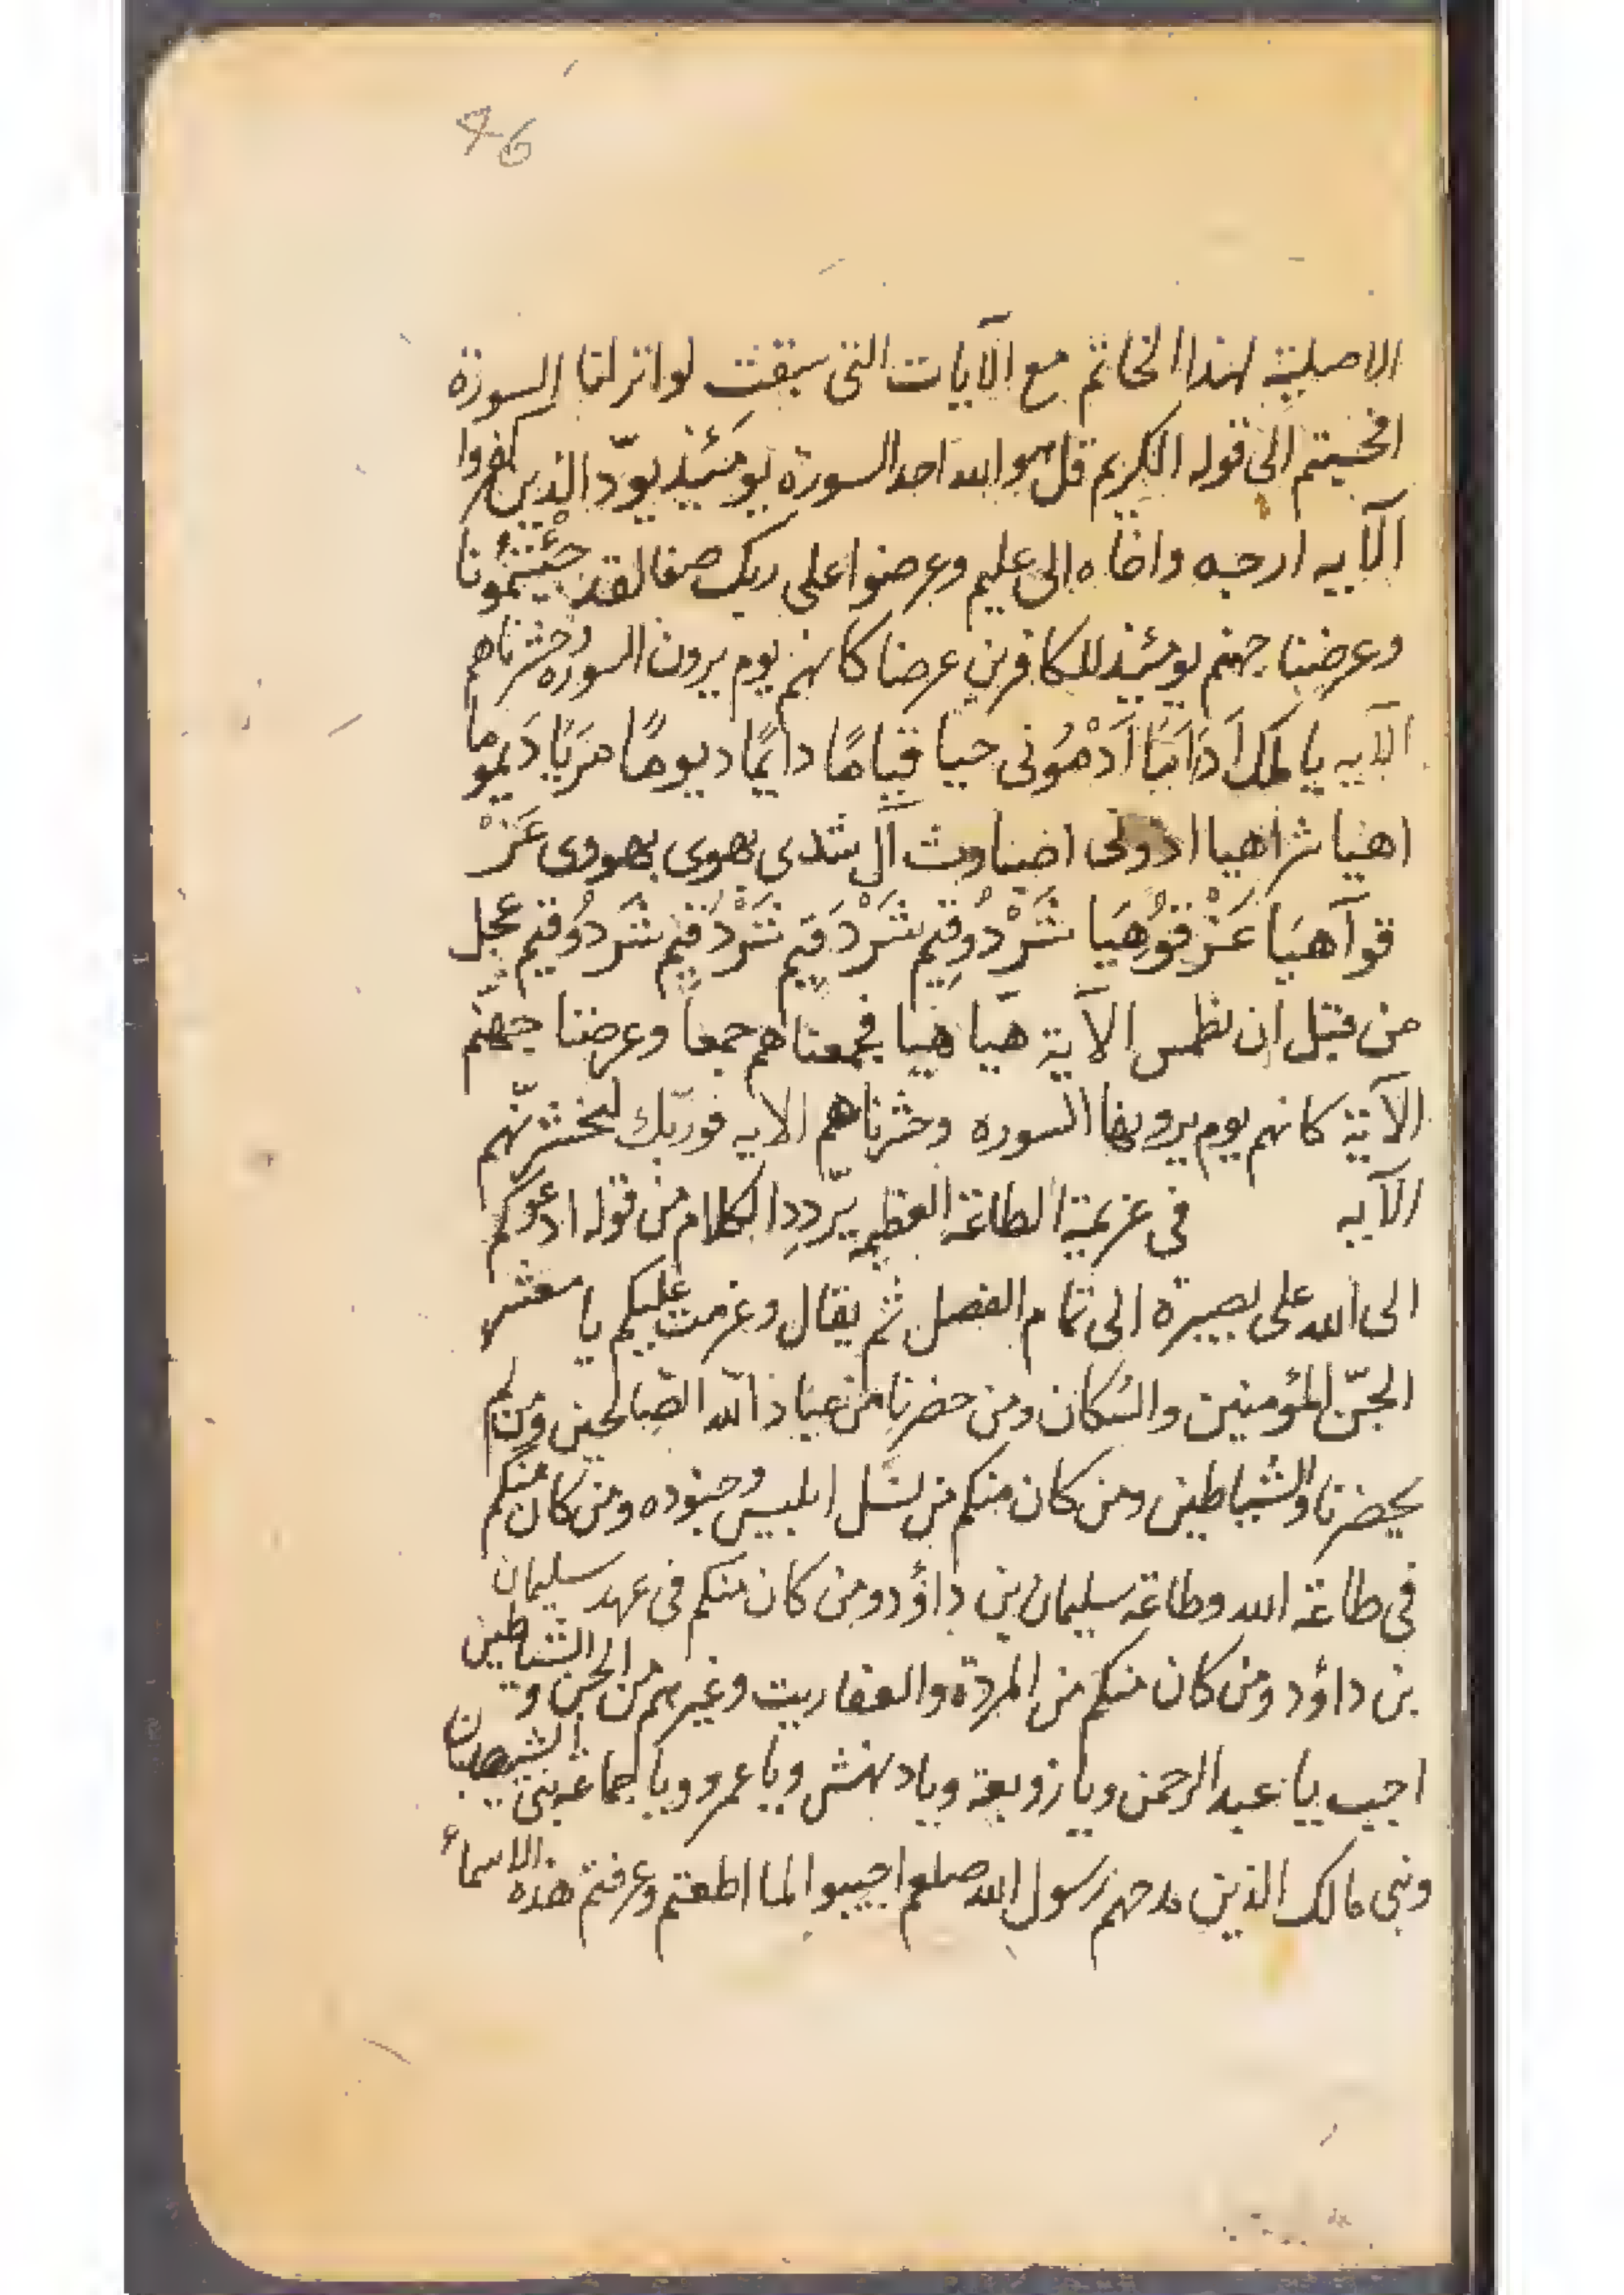 46
الاصلية لهذا الخاتم مع الآيات التى سبقت لو انزلنا السورة
افحسبتم الى قوله الكريم قل هو الله احد السورة يومَئِذ يودّ الذين كفروا
الآيه ارجه واخاه الى عليم وعرضوا على ربك صفا لقد جئتمُونا
وعرضنا جهنم يومئذ للكافرين عرضا كانهم يوم يرون السوره وحشرناهم
الآيه يا لمك اَدَابًا اَدْمُونى حيا قياما دايمًا ديومًا مَرَيًا دَيموما
اهيا شراهيا ادونى اصباوث آل شدى يهوى يهودى عَزْ
قو آهيَا عَزْقوُهَيَا شَرْدُوقيم شَرْدَقيم شَرْدُقيم شَردُوقيم عجل
من قبل ان نطمس الآية هيا هيا فجمعناهم جمعا وعرضنا جهنم
الآية كانهم يوم يرونها السوره وحشرناهم الايه فوربّك لنحشرنّهم
الآيه في عزيمة الطاعة العظيمه يرّدد الكلام من قوله ادعوكم
الى الله على بصيرة الى تمام الفصل ثم يقال وعزمت عليكم يا معشر
الجنّ المؤمنين والسُكان ومن حضرنا من عباد الله الصّالحين ومن لم
يحضرنا والشياطين ومن كان منكم من نسل ابليس وجنوده ومن كان منكم
في طاعة الله وطاعة سليمان بن داؤد ومن كان منكم فى عهد سليمان
بن داؤد ومن كان منكم من المردة والعفاريت وغيرهم من الجن والشياطين
اجيب يا عبد الرحمن ويا زوبعة ويا دنهش ويا عمرو ويا جماعة بنى الشيصبان
وبنى مالك الذين مدحهم رسول الله صلعم اجيبوا لما اطعتم وعرفتم هذه الاسماء